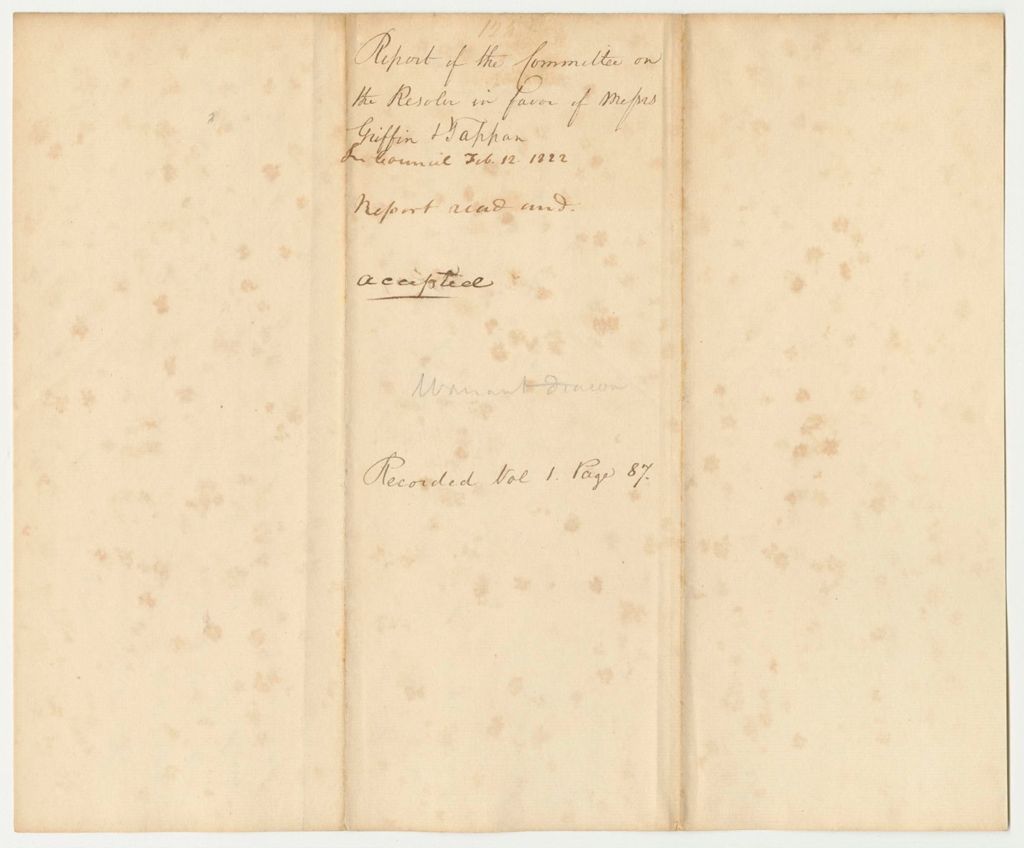 Report of the Committee on
the Resolve in favor of Messrs
Griffin & Tappan
In Council Feb. 12 1822
Report read and.
accepted
Warrant drawn
Recorded Vol 1. Page 87.